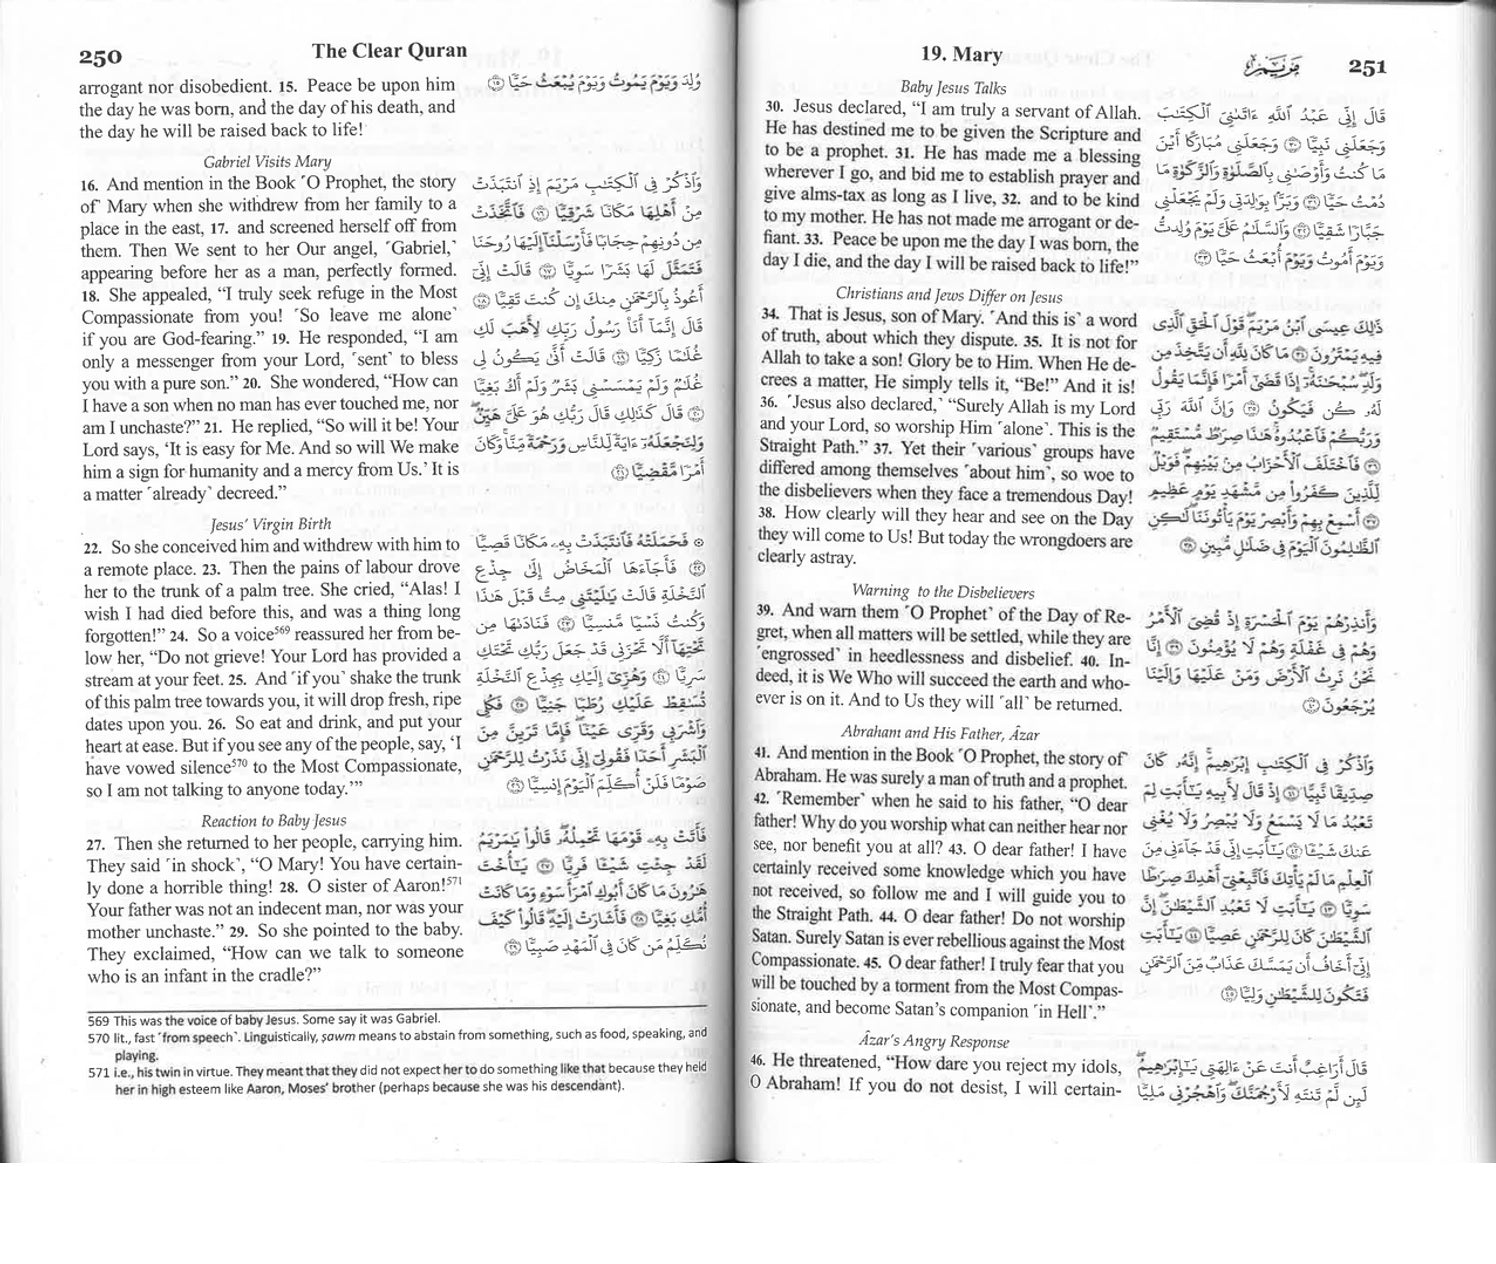 250
The Clear Quran
arrogant nor disobedient. 15. Peace be upon him
the day he was born, and the day of his death, and
the day he will be raised back to life!
وُلِدَ وَيَوْمَ يَمُوتُ وَيَوْمَ يُبْعَثُ حَيًّا ١٥
Gabriel Visits Mary
16. And mention in the Book ˹O Prophet, the story
of˺ Mary when she withdrew from her family to a
place in the east, 17. and screened herself off from
them. Then We sent to her Our angel, ˹Gabriel,˺
appearing before her as a man, perfectly formed.
18. She appealed, “I truly seek refuge in the Most
Compassionate from you! ˹So leave me alone˺
if you are God-fearing.” 19. He responded, “I am
only a messenger from your Lord, ˹sent˺ to bless
you with a pure son.” 20. She wondered, “How can
I have a son when no man has ever touched me, nor
am I unchaste?” 21. He replied, “So will it be! Your
Lord says, ‘It is easy for Me. And so will We make
him a sign for humanity and a mercy from Us.’ It is
a matter ˹already˺ decreed.”
وَٱذْكُرْ فِى ٱلْكِتَـٰبِ مَرْيَمَ إِذِ ٱنتَبَذَتْ
مِنْ أَهْلِهَا مَكَانًا شَرْقِيًّا ١٦ فَٱتَّخَذَتْ
مِن دُونِهِمْ حِجَابًا فَأَرْسَلْنَآ إِلَيْهَا رُوحَنَا
فَتَمَثَّلَ لَهَا بَشَرًا سَوِيًّا ١٧ قَالَتْ إِنِّىٓ
أَعُوذُ بِٱلرَّحْمَـٰنِ مِنكَ إِن كُنتَ تَقِيًّا ١٨
قَالَ إِنَّمَآ أَنَا۠ رَسُولُ رَبِّكِ لِأَهَبَ لَكِ
غُلَـٰمًا زَكِيًّا ١٩ قَالَتْ أَنَّىٰ يَكُونُ لِى
غُلَـٰمٌ وَلَمْ يَمْسَسْنِى بَشَرٌ وَلَمْ أَكُ بَغِيًّا
٢٠ قَالَ كَذَٰلِكِ قَالَ رَبُّكِ هُوَ عَلَىَّ هَيِّنٌ ۖ
وَلِنَجْعَلَهُۥٓ ءَايَةً لِّلنَّاسِ وَرَحْمَةً مِّنَّا ۚ وَكَانَ
أَمْرًا مَّقْضِيًّا ٢١
Jesus’ Virgin Birth
22. So she conceived him and withdrew with him to
a remote place. 23. Then the pains of labour drove
her to the trunk of a palm tree. She cried, “Alas! I
wish I had died before this, and was a thing long
forgotten!” 24. So a voice569 reassured her from be-
low her, “Do not grieve! Your Lord has provided a
stream at your feet. 25. And ˹if you˺ shake the trunk
of this palm tree towards you, it will drop fresh, ripe
dates upon you. 26. So eat and drink, and put your
heart at ease. But if you see any of the people, say, ‘I
have vowed silence570 to the Most Compassionate,
so I am not talking to anyone today.’”
۞ فَحَمَلَتْهُ فَٱنتَبَذَتْ بِهِۦ مَكَانًا قَصِيًّا
٢٢ فَأَجَآءَهَا ٱلْمَخَاضُ إِلَىٰ جِذْعِ
ٱلنَّخْلَةِ قَالَتْ يَـٰلَيْتَنِى مِتُّ قَبْلَ هَـٰذَا
وَكُنتُ نَسْيًا مَّنسِيًّا ٢٣ فَنَادَىٰهَا مِن
تَحْتِهَآ أَلَّا تَحْزَنِى قَدْ جَعَلَ رَبُّكِ تَحْتَكِ
سَرِيًّا ٢٤ وَهُزِّىٓ إِلَيْكِ بِجِذْعِ ٱلنَّخْلَةِ
تُسَـٰقِطْ عَلَيْكِ رُطَبًا جَنِيًّا ٢٥ فَكُلِى
وَٱشْرَبِى وَقَرِّى عَيْنًا ۖ فَإِمَّا تَرَيِنَّ مِنَ
ٱلْبَشَرِ أَحَدًا فَقُولِىٓ إِنِّى نَذَرْتُ لِلرَّحْمَـٰنِ
صَوْمًا فَلَنْ أُكَلِّمَ ٱلْيَوْمَ إِنسِيًّا ٢٦
Reaction to Baby Jesus
27. Then she returned to her people, carrying him.
They said ˹in shock˺, “O Mary! You have certain-
ly done a horrible thing! 28. O sister of Aaron!571
Your father was not an indecent man, nor was your
mother unchaste.” 29. So she pointed to the baby.
They exclaimed, “How can we talk to someone
who is an infant in the cradle?”
فَأَتَتْ بِهِۦ قَوْمَهَا تَحْمِلُهُۥ ۖ قَالُوا۟ يَـٰمَرْيَمُ
لَقَدْ جِئْتِ شَيْـًٔا فَرِيًّا ٢٧ يَـٰٓأُخْتَ
هَـٰرُونَ مَا كَانَ أَبُوكِ ٱمْرَأَ سَوْءٍ وَمَا كَانَتْ
أُمُّكِ بَغِيًّا ٢٨ فَأَشَارَتْ إِلَيْهِ ۖ قَالُوا۟ كَيْفَ
نُكَلِّمُ مَن كَانَ فِى ٱلْمَهْدِ صَبِيًّا ٢٩
569 This was the voice of baby Jesus. Some say it was Gabriel.
570 lit., fast ˹from speech˺. Linguistically, ṣawm means to abstain from something, such as food, speaking, and
playing.
571 i.e., his twin in virtue. They meant that they did not expect her to do something like that because they held
her in high esteem like Aaron, Moses’ brother (perhaps because she was his descendant).
19. Mary
مَرْيَم
251
Baby Jesus Talks
30. Jesus declared, “I am truly a servant of Allah.
He has destined me to be given the Scripture and
to be a prophet. 31. He has made me a blessing
wherever I go, and bid me to establish prayer and
give alms-tax as long as I live, 32. and to be kind
to my mother. He has not made me arrogant or de-
fiant. 33. Peace be upon me the day I was born, the
day I die, and the day I will be raised back to life!”
قَالَ إِنِّى عَبْدُ ٱللَّهِ ءَاتَىٰنِىَ ٱلْكِتَـٰبَ
وَجَعَلَنِى نَبِيًّا ٣٠ وَجَعَلَنِى مُبَارَكًا أَيْنَ
مَا كُنتُ وَأَوْصَـٰنِى بِٱلصَّلَوٰةِ وَٱلزَّكَوٰةِ مَا
دُمْتُ حَيًّا ٣١ وَبَرًّۢا بِوَٰلِدَتِى وَلَمْ يَجْعَلْنِى
جَبَّارًا شَقِيًّا ٣٢ وَٱلسَّلَـٰمُ عَلَىَّ يَوْمَ وُلِدتُّ
وَيَوْمَ أَمُوتُ وَيَوْمَ أُبْعَثُ حَيًّا ٣٣
Christians and Jews Differ on Jesus
34. That is Jesus, son of Mary. ˹And this is˺ a word
of truth, about which they dispute. 35. It is not for
Allah to take a son! Glory be to Him. When He de-
crees a matter, He simply tells it, “Be!” And it is!
36. ˹Jesus also declared,˺ “Surely Allah is my Lord
and your Lord, so worship Him ˹alone˺. This is the
Straight Path.” 37. Yet their ˹various˺ groups have
differed among themselves ˹about him˺, so woe to
the disbelievers when they face a tremendous Day!
38. How clearly will they hear and see on the Day
they will come to Us! But today the wrongdoers are
clearly astray.
ذَٰلِكَ عِيسَى ٱبْنُ مَرْيَمَ ۚ قَوْلَ ٱلْحَقِّ ٱلَّذِى
فِيهِ يَمْتَرُونَ ٣٤ مَا كَانَ لِلَّهِ أَن يَتَّخِذَ مِن
وَلَدٍ ۖ سُبْحَـٰنَهُۥٓ ۚ إِذَا قَضَىٰٓ أَمْرًا فَإِنَّمَا يَقُولُ
لَهُۥ كُن فَيَكُونُ ٣٥ وَإِنَّ ٱللَّهَ رَبِّى
وَرَبُّكُمْ فَٱعْبُدُوهُ ۚ هَـٰذَا صِرَٰطٌ مُّسْتَقِيمٌ
٣٦ فَٱخْتَلَفَ ٱلْأَحْزَابُ مِنۢ بَيْنِهِمْ ۖ فَوَيْلٌ
لِّلَّذِينَ كَفَرُوا۟ مِن مَّشْهَدِ يَوْمٍ عَظِيمٍ
٣٧ أَسْمِعْ بِهِمْ وَأَبْصِرْ يَوْمَ يَأْتُونَنَا ۖ لَـٰكِنِ
ٱلظَّـٰلِمُونَ ٱلْيَوْمَ فِى ضَلَـٰلٍ مُّبِينٍ ٣٨
Warning to the Disbelievers
39. And warn them ˹O Prophet˺ of the Day of Re-
gret, when all matters will be settled, while they are
˹engrossed˺ in heedlessness and disbelief. 40. In-
deed, it is We Who will succeed the earth and who-
ever is on it. And to Us they will ˹all˺ be returned.
وَأَنذِرْهُمْ يَوْمَ ٱلْحَسْرَةِ إِذْ قُضِىَ ٱلْأَمْرُ
وَهُمْ فِى غَفْلَةٍ وَهُمْ لَا يُؤْمِنُونَ ٣٩ إِنَّا
نَحْنُ نَرِثُ ٱلْأَرْضَ وَمَنْ عَلَيْهَا وَإِلَيْنَا
يُرْجَعُونَ ٤٠
Abraham and His Father, Âzar
41. And mention in the Book ˹O Prophet, the story of˺
Abraham. He was surely a man of truth and a prophet.
42. ˹Remember˺ when he said to his father, “O dear
father! Why do you worship what can neither hear nor
see, nor benefit you at all? 43. O dear father! I have
certainly received some knowledge which you have
not received, so follow me and I will guide you to
the Straight Path. 44. O dear father! Do not worship
Satan. Surely Satan is ever rebellious against the Most
Compassionate. 45. O dear father! I truly fear that you
will be touched by a torment from the Most Compas-
sionate, and become Satan’s companion ˹in Hell˺.”
وَٱذْكُرْ فِى ٱلْكِتَـٰبِ إِبْرَٰهِيمَ ۚ إِنَّهُۥ كَانَ
صِدِّيقًا نَّبِيًّا ٤١ إِذْ قَالَ لِأَبِيهِ يَـٰٓأَبَتِ لِمَ
تَعْبُدُ مَا لَا يَسْمَعُ وَلَا يُبْصِرُ وَلَا يُغْنِى
عَنكَ شَيْـًٔا ٤٢ يَـٰٓأَبَتِ إِنِّى قَدْ جَآءَنِى مِنَ
ٱلْعِلْمِ مَا لَمْ يَأْتِكَ فَٱتَّبِعْنِىٓ أَهْدِكَ صِرَٰطًا
سَوِيًّا ٤٣ يَـٰٓأَبَتِ لَا تَعْبُدِ ٱلشَّيْطَـٰنَ ۖ إِنَّ
ٱلشَّيْطَـٰنَ كَانَ لِلرَّحْمَـٰنِ عَصِيًّا ٤٤ يَـٰٓأَبَتِ
إِنِّىٓ أَخَافُ أَن يَمَسَّكَ عَذَابٌ مِّنَ ٱلرَّحْمَـٰنِ
فَتَكُونَ لِلشَّيْطَـٰنِ وَلِيًّا ٤٥
Âzar’s Angry Response
46. He threatened, “How dare you reject my idols,
O Abraham! If you do not desist, I will certain-
قَالَ أَرَاغِبٌ أَنتَ عَنْ ءَالِهَتِى يَـٰٓإِبْرَٰهِيمُ ۖ
لَئِن لَّمْ تَنتَهِ لَأَرْجُمَنَّكَ ۖ وَٱهْجُرْنِى مَلِيًّا